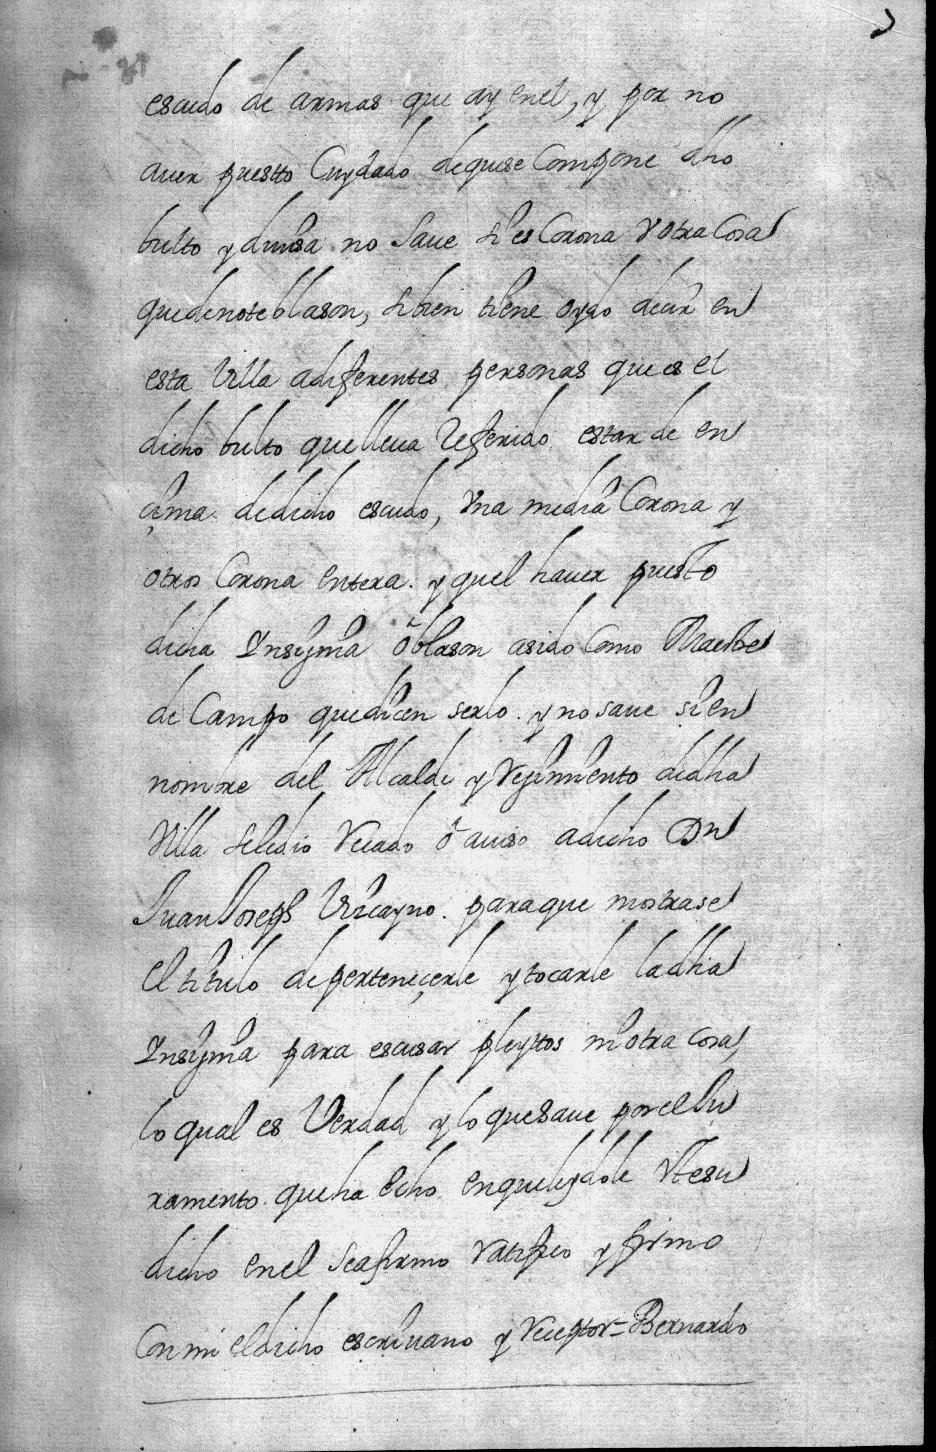 escudo de armas que ay enel, y por no
aver puestto Cuydado dequese Compone dho
bulto y divisa no save si es Corona V otra Cosa
quedenote blason, si bien tiene oydo decir en
esta Villa adiferentes personas que es el
dicho bulto que lleva Referido estar de en
çima dedicho escudo, Vna media Corona y
otros Corona entera. y quel haver puesto
dicha Insignia ô blason asido Como Maestre
de Campo quedicen serlo. y no save si en
nombre del Alcalde y Rejimiento dedha
Villa seledio Recado ô aviso adicho Dn
Juan Joseph Vizcayno. paraque mostrase
el titulo depertenecerle ytocarle ladha
Insignia para escusar pleyttos ni otra cosa
lo qual es Verdad y lo quesave porel Ju
ramento. queha echo enqueleydole Este su
dicho enel seafirmo Ratifico y firmo
Con mi eldicho escrivano y Receptor = Bernardo